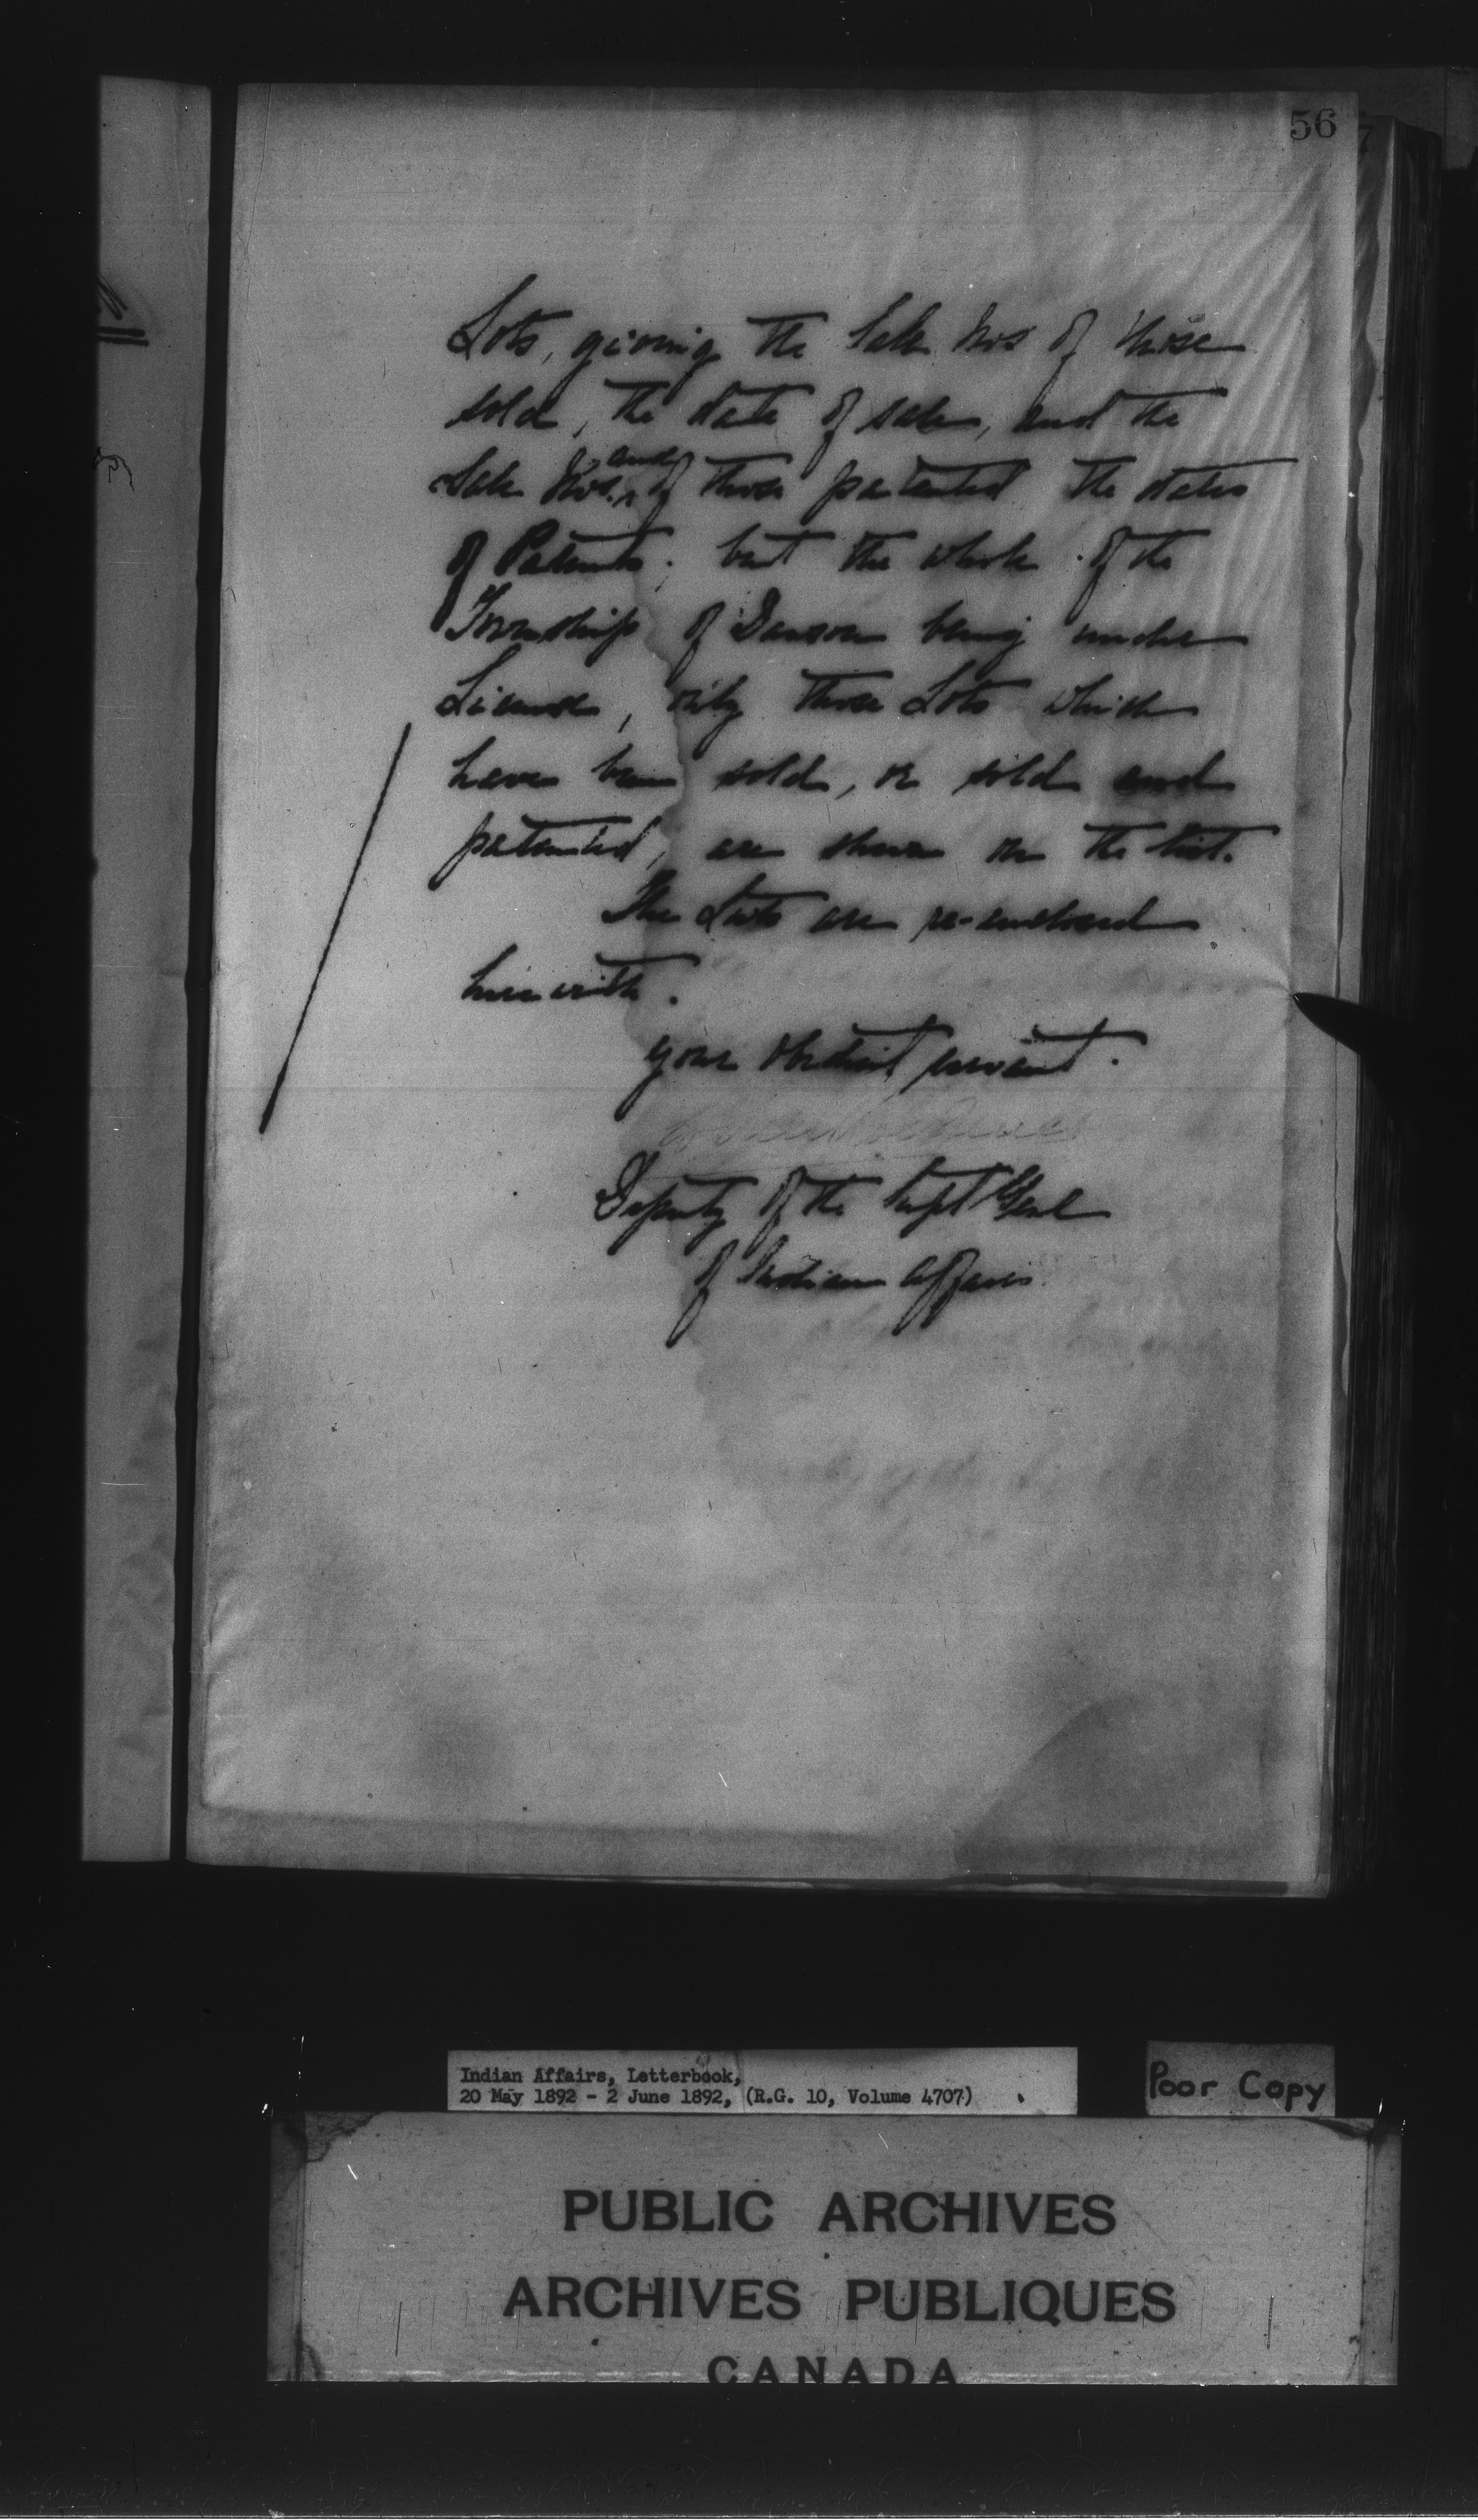 56
Lots, giving the Sale Nos of those
sold, the date of sale, and the
Sale Nos. and of those patented the dates
of Patents; but the whole of the
Township of Dawson being under
License, only those Lots which
have been sold, or sold and
patented, are shown on the list.
The Lists are re-enclosed
herewith.
your obedient servant.
Deputy of the Supt Genl
of Indian Affairs
Indian Affairs, Letterbook,
20 May 1892 - 2 June 1892, (R.G. 10, Volume 4707)
Poor Copy
PUBLIC ARCHIVES
ARCHIVES PUBLIQUES
CANADA